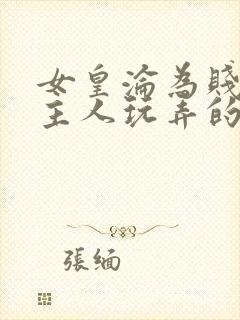 女皇淪為賤
主人玩弄的
張緬